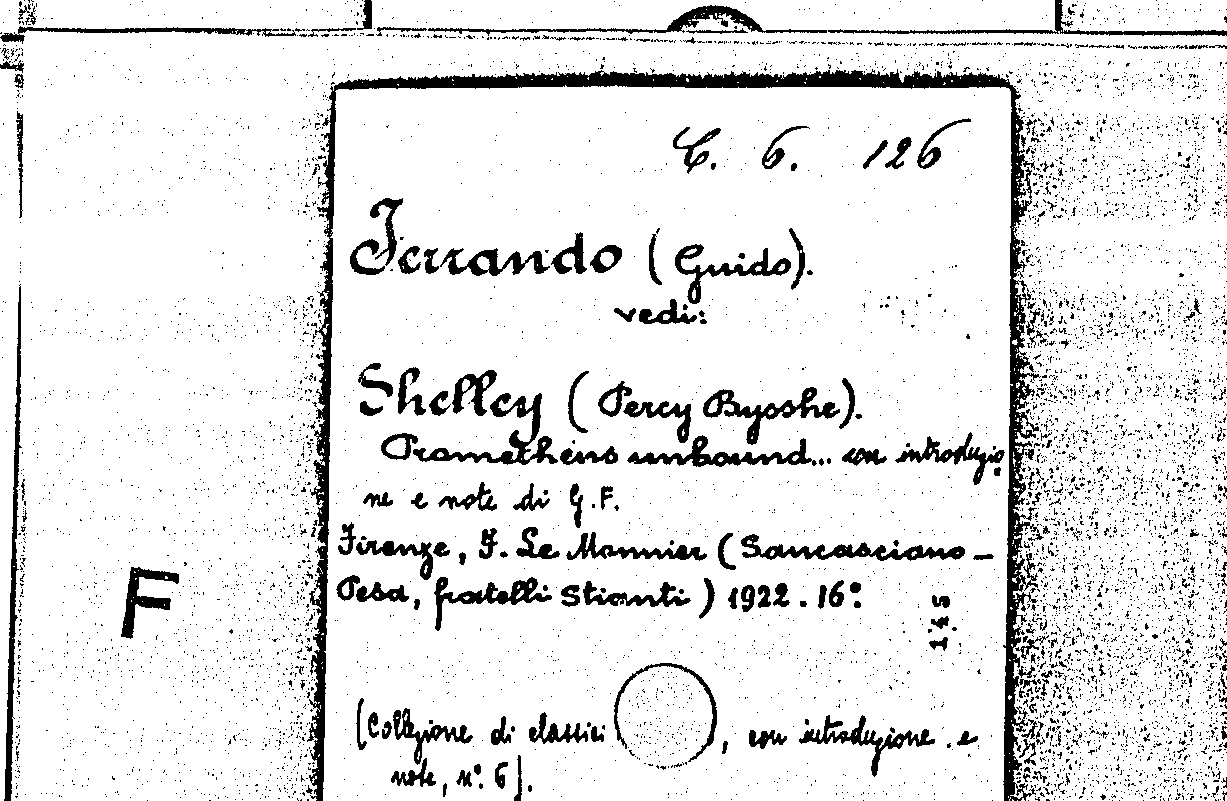 C. 6. 126
Ferrando (Guido).
vedi:
Shelley (Percy Bysshe).
Prometheus unbound... con introduzio
ne e note di G.F.
Firenze, F. Le Monnier (Sancasciano-
Pesa, fratelli Stianti) 1922. 16º.
F
[Collezione di classici , con introduzione e
note, nº. 6].